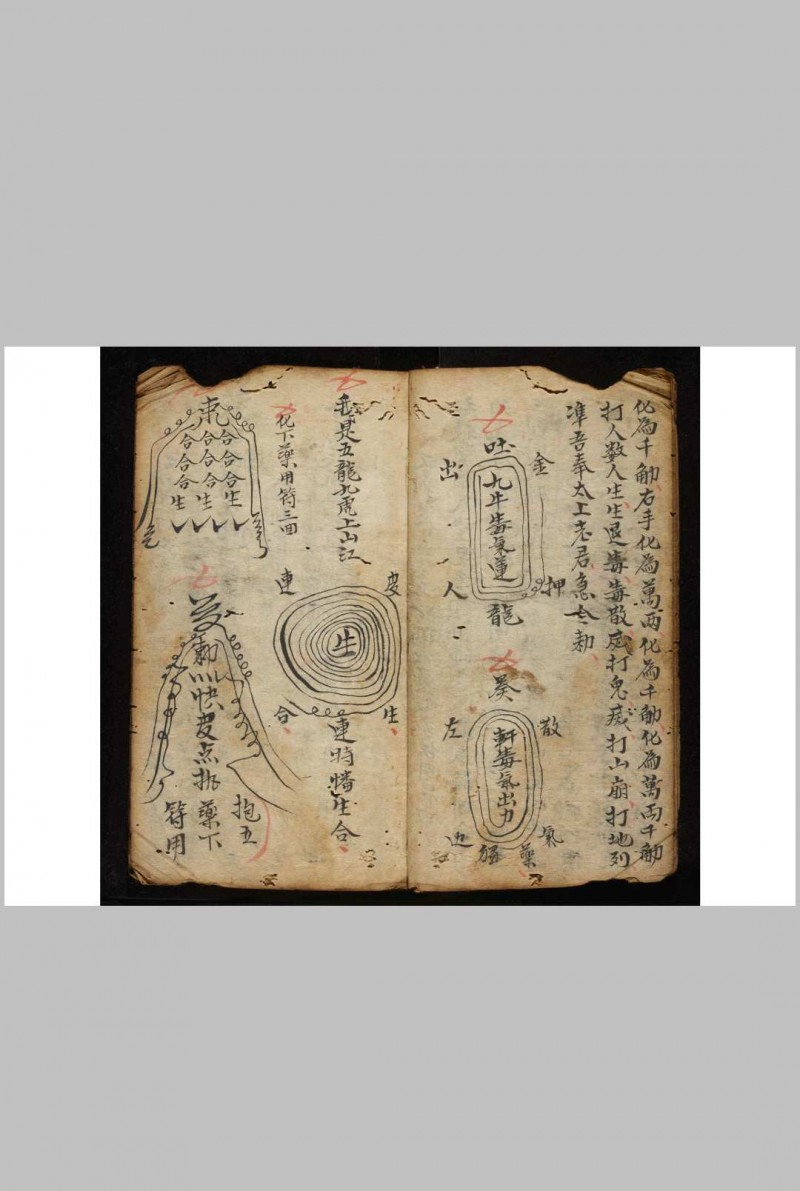 化為千觔右手化為萬兩化為千觔化為萬兩千觔
打人數人生生退毒毒散或打鬼或打山崩打地列
準吾奉太上老君急令勅
金
吐
出
九牛毒氣蓮
押
人
龍
癸
散
左
軒毒氣出力
氣
藥
我是五龍九虎上山江
皮
連
生
生
合
連時幡生合
化下藥用符三回
合合合
合合合
合合合
生生生
勅
快皮点挑藥下
抱五
符用